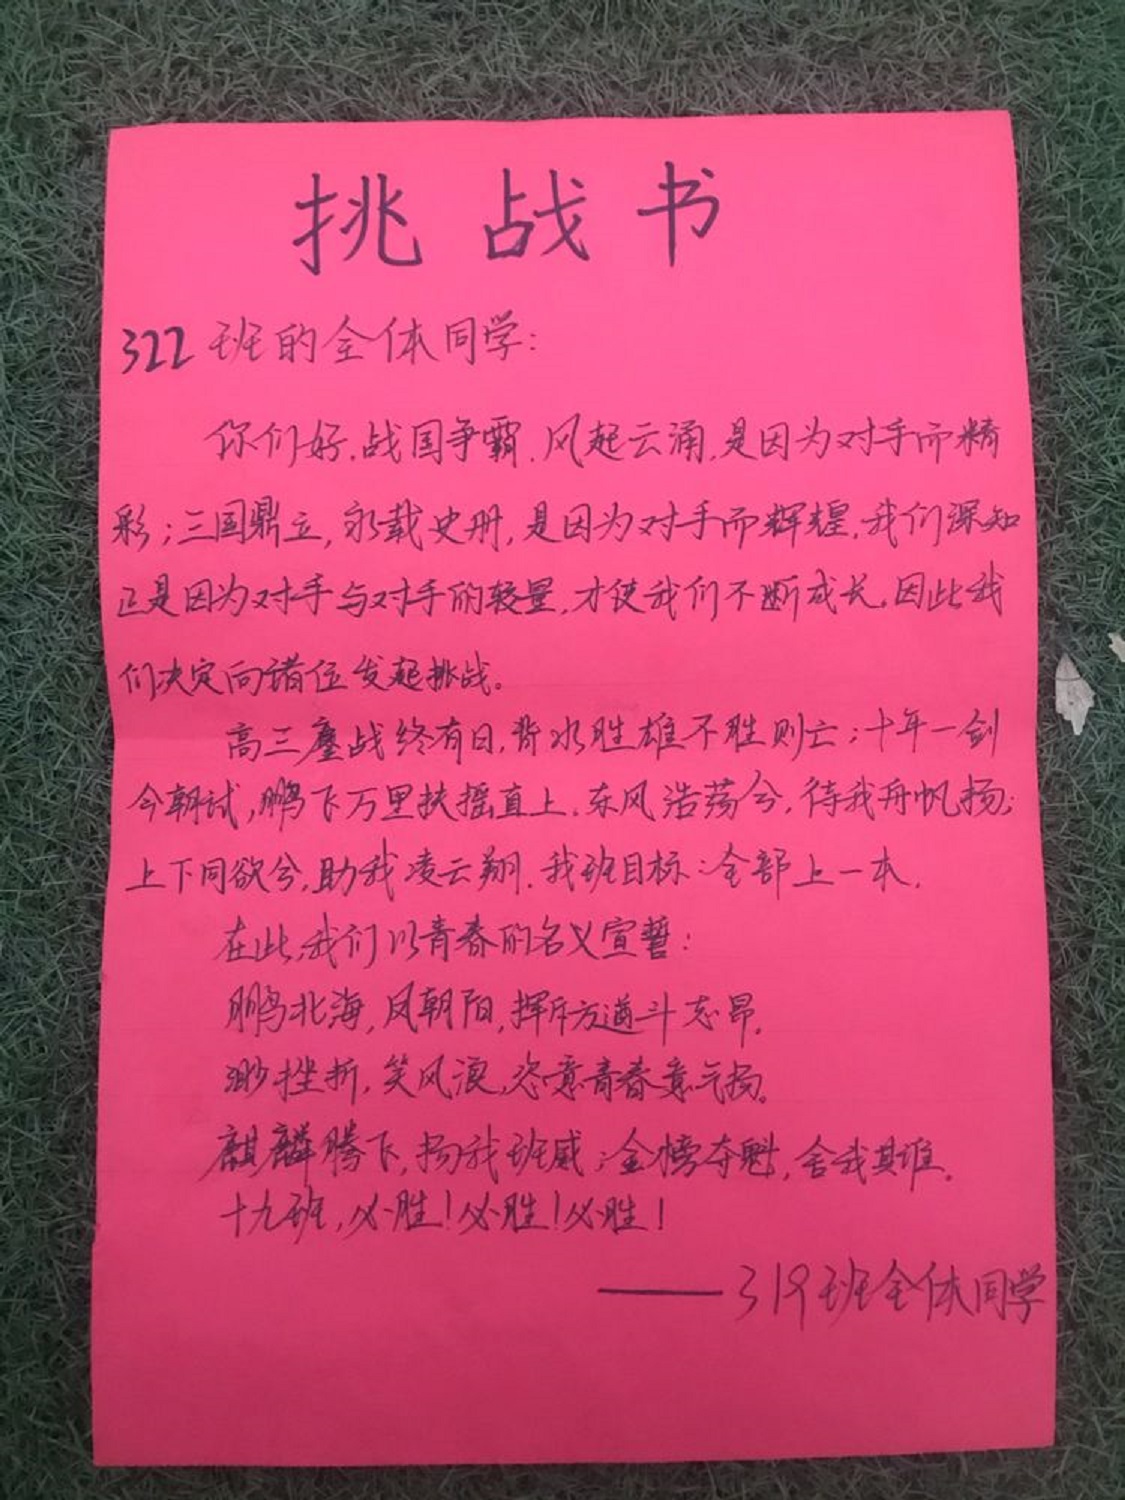 挑战书
322班的全体同学:
你们好.战国争霸.风起云涌,是因为对手而精
彩;三国鼎立,永载史册,是因为对手而辉煌.我们深知
正是因为对手与对手的较量,才使我们不断成长.因此我
们决定向诸位发起挑战。
高三鏖战终有日,背水胜雄不胜则亡;十年一剑
今朝试,鹏飞万里扶摇直上.东风浩荡兮,待我舟帆扬;
上下同欲兮,助我凌云翔.我班目标:全部上一本.
在此,我们以青春的名义宣誓:
鹏北海,凤朝阳,挥斥方遒斗志昂.
渺挫折,笑风浪,恣意青春意气扬。
麒麟腾飞,扬我班威;金榜夺魁,舍我其谁.
十九班,必胜!必胜!必胜!
——319班全体同学